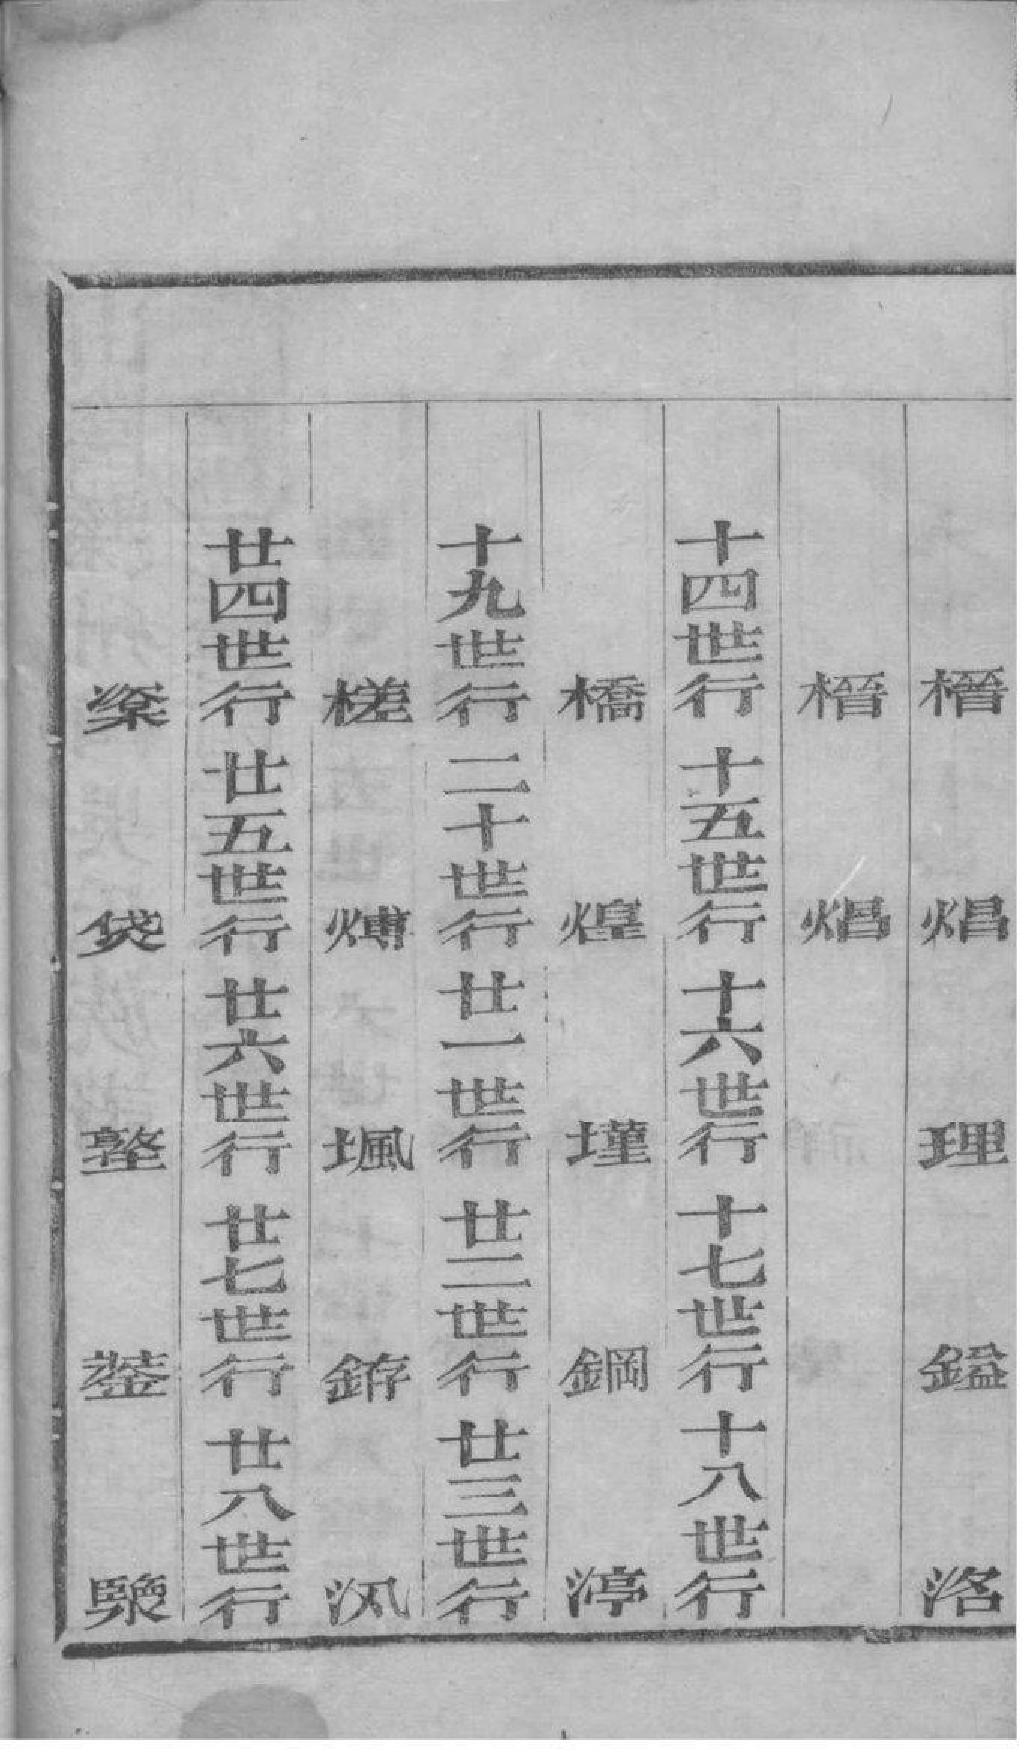 榗 焻 理 鎰 洛
榗 焻
十四世行 十五世行 十六世行 十七世行 十八世行
橋 煌 墐 鋼 渟
十九世行 二十世行 廿一世行 廿二世行 廿三世行
槎 煿 堸 銌 汎
廿四世行 廿五世行 廿六世行 廿七世行 廿八世行